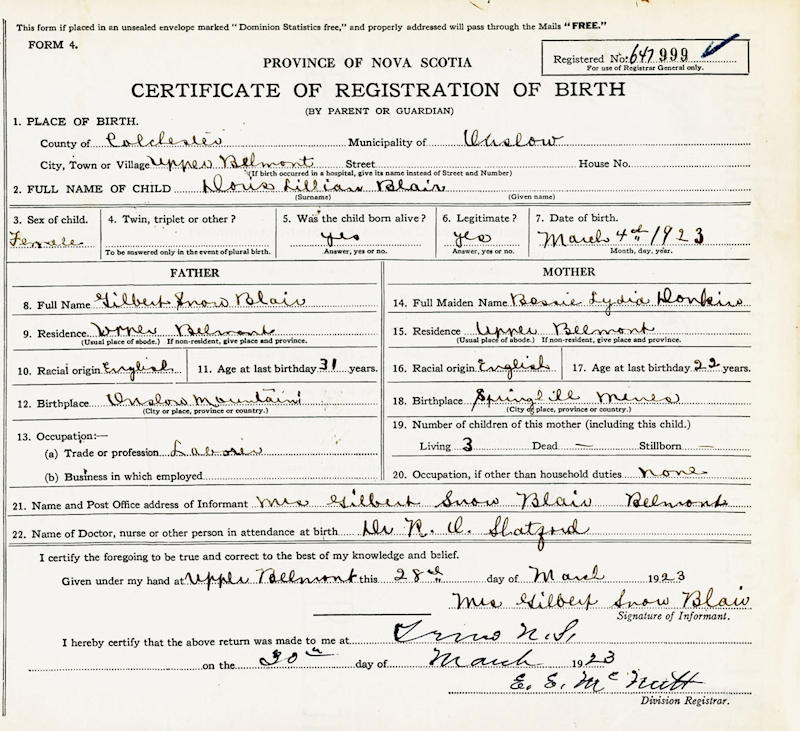 This form if placed in an unsealed envelope marked "Dominion Statistics free," and properly addressed will pass through the Mails "FREE."
FORM 4.
Registered No: 647999
For use of Registrar General only.
PROVINCE OF NOVA SCOTIA
CERTIFICATE OF REGISTRATION OF BIRTH
(BY PARENT OR GUARDIAN)
1. PLACE OF BIRTH.
County of Colchester Municipality of Onslow
City, Town or Village Upper Belmont Street House No.
(If birth occurred in a hospital, give its name instead of Street and Number)
2. FULL NAME OF CHILD Doris Lillian Blair
(Surname) (Given name)
3. Sex of child. 4. Twin, triplet or other? 5. Was the child born alive? 6. Legitimate? 7. Date of birth.
Female yes yes March 4th 1923
To be answered only in the event of plural birth. Answer, yes or no. Answer, yes or no. Month, day, year.
FATHER
8. Full Name Gilbert Snow Blair
9. Residence Upper Belmont
(Usual place of abode.) If non-resident, give place and province.
10. Racial origin English 11. Age at last birthday 31 years.
12. Birthplace Onslow Mountain
(City or place, province or country.)
13. Occupation:—
(a) Trade or profession Laborer
(b) Business in which employed
MOTHER
14. Full Maiden Name Bessie Lydia Donkin
15. Residence Upper Belmont
(Usual place of abode.) If non-resident, give place and province.
16. Racial origin English 17. Age at last birthday 22 years.
18. Birthplace Springhill Mines
(City or place, province or country.)
19. Number of children of this mother (including this child.)
Living 3 Dead — Stillborn —
20. Occupation, if other than household duties none
21. Name and Post Office address of Informant Mrs Gilbert Snow Blair Belmont
22. Name of Doctor, nurse or other person in attendance at birth Dr R. O. Shatford
I certify the foregoing to be true and correct to the best of my knowledge and belief.
Given under my hand at Upper Belmont this 28th day of March 1923
Mrs Gilbert Snow Blair
Signature of Informant.
I hereby certify that the above return was made to me at Truro N.S.
on the 30th day of March 1923
E. S. McNutt
Division Registrar.